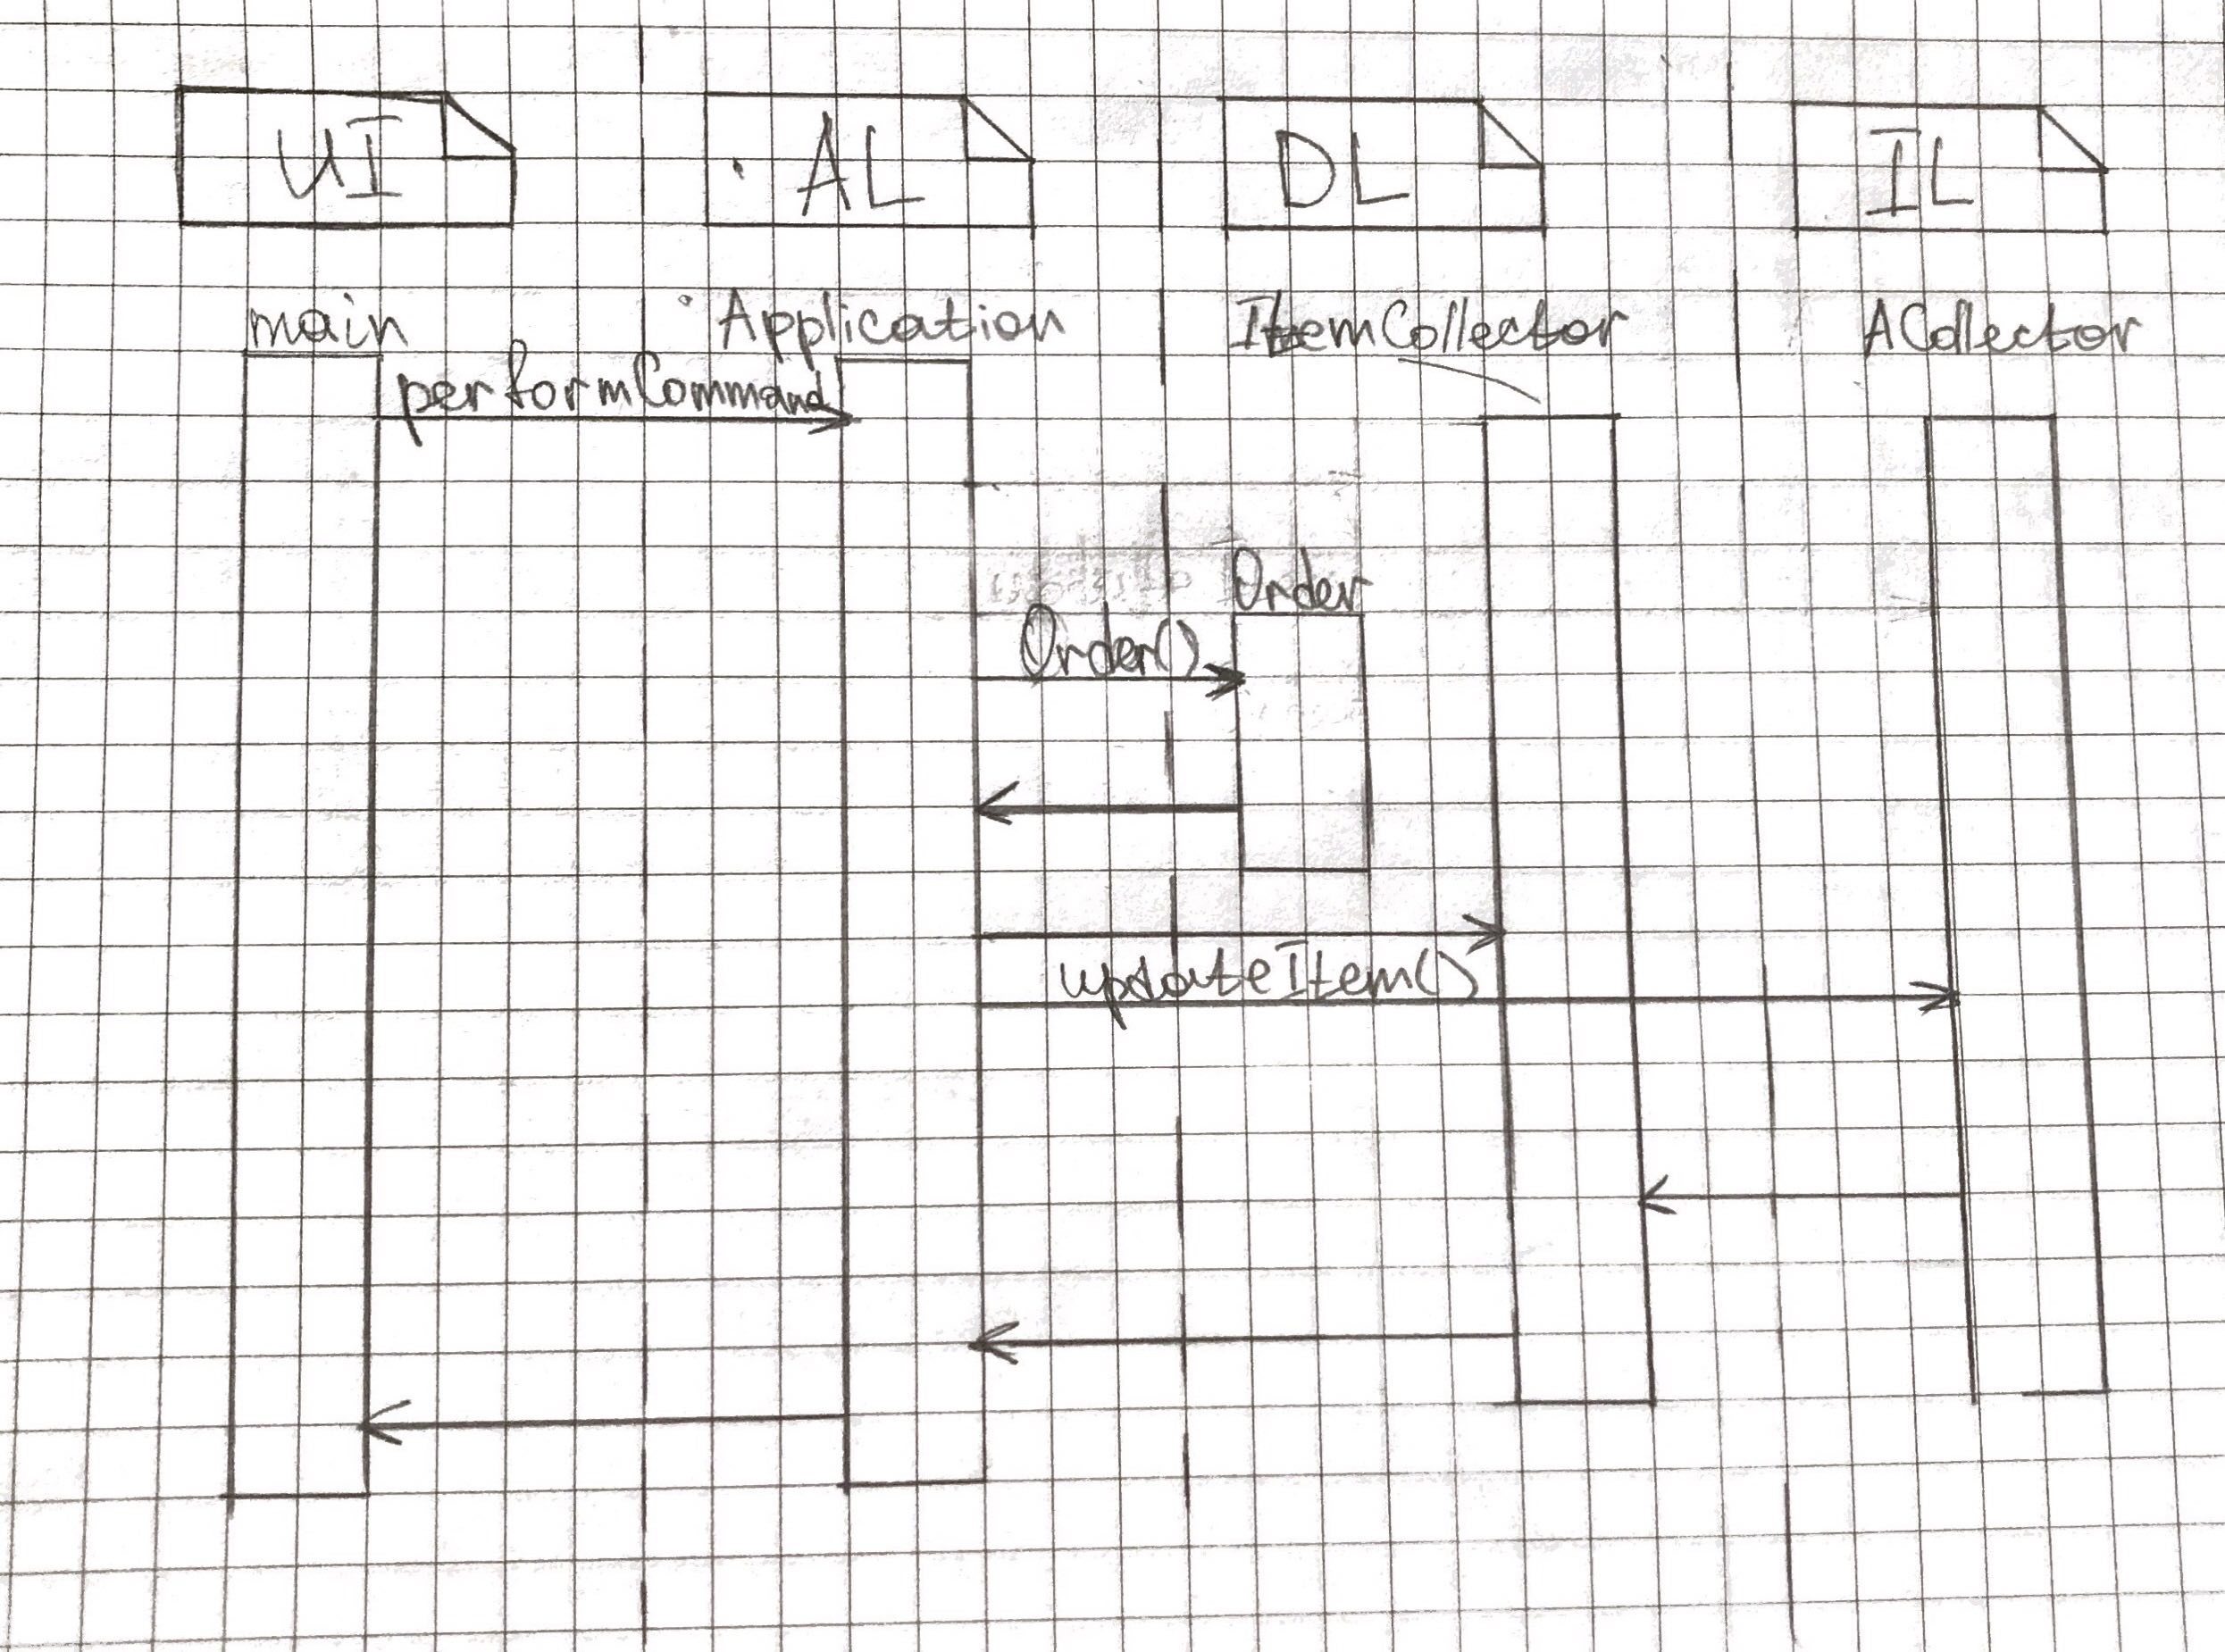 UI AL DL IL
main Application ItemCollector ACollector
performCommand
Order
Order()
updateItem()